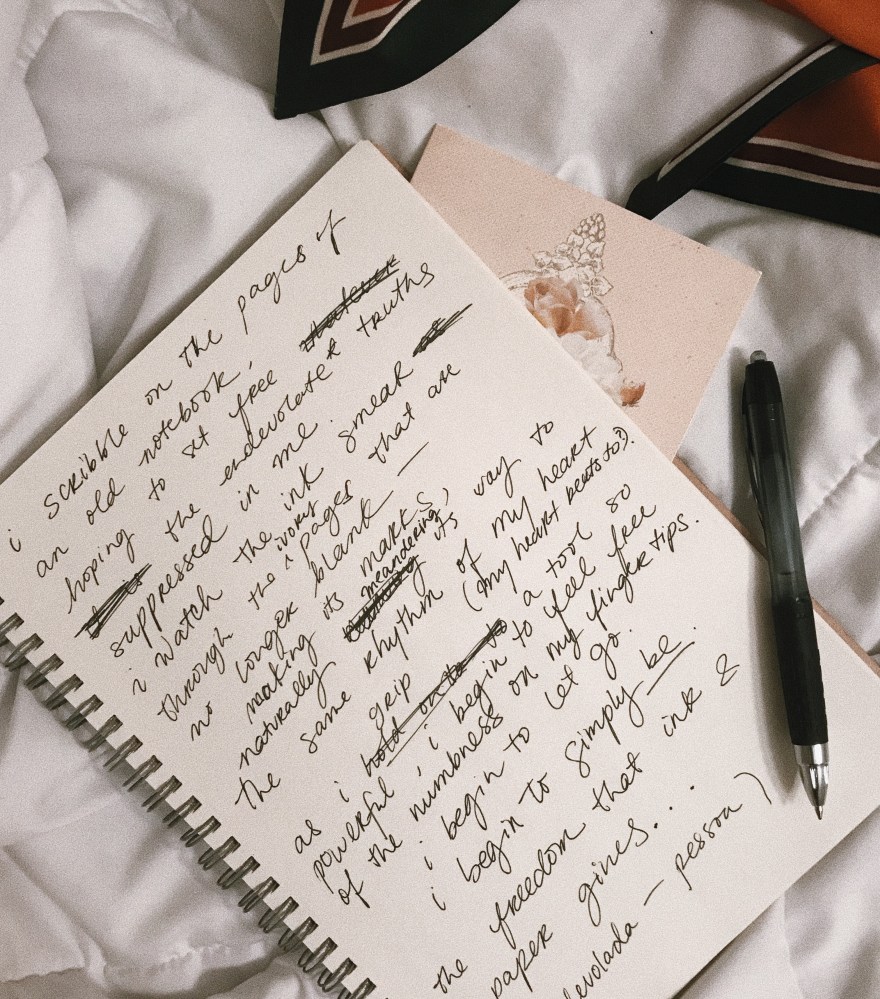 i scribble on the pages of
an old notebook,
hoping to set free whatever
the endevolate & truths
suppressed in me.
i watch the ink smear
through the ivory pages that are
no longer blank —
making its marks,
naturally meandering its way to
the same rhythm of my heart
(my heart beats to?).
as i grip hold on to to a tool so
powerful, i begin to feel free
of the numbness on my fingertips.
i begin to let go.
i begin to simply be.
the freedom that ink &
paper gives...
devolada — pessoa)